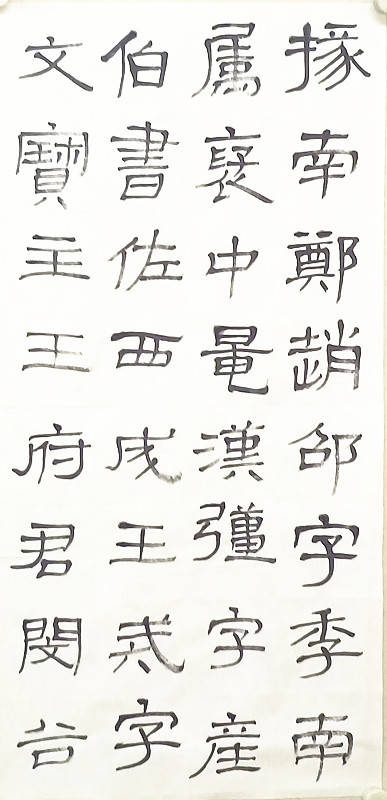 掾南鄭趙邵字季南
属褒中鼂漢彊字產
伯書佐西成王戒字
文寶主王府君閔谷